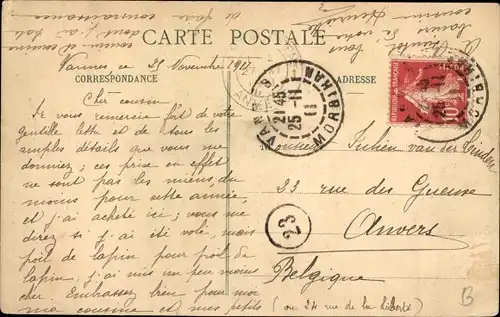 CARTE POSTALE
Vannes ce 25 Novembre 1911
CORRESPONDANCE
ADRESSE
Cher cousin
Je vous remercie fort de votre
gentille lettre et de tous les
amples détails que vous me
donniez ; ces prise en effet
ne sont pas les miens, du
moins pour cette année,
et j'ai acheté ici ; vous me
direz si j'ai été volé, mais
poil de lapin pour poil de
lapin, j'ai mis un peu moins
cher. Embrassez bien pour moi
ma cousine et mes petits
VANNES
21 45
25 - 11
11
MORBIHAN
RÉPUBLIQUE FRANÇAISE
10
Monsieur Julien van der Linden
23 rue des Gueux
Anvers
Belgique
(ou 24 rue de la liberté)
23
B